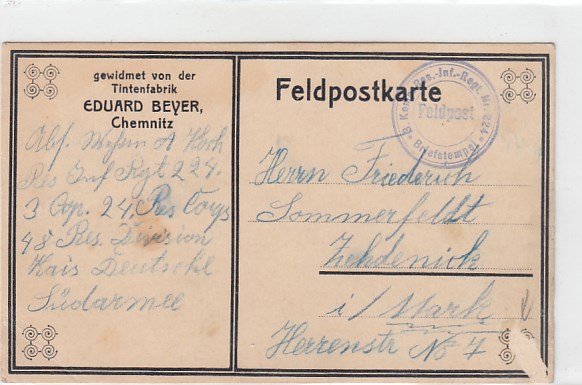 gewidmet von der
Tintenfabrik
EDUARD BEYER,
Chemnitz
Abs. A Koch
Res Inf Rgt 224.
3 Cop. 24. Res Corps
48 Res. Division
Kais Deutsche
Südarmee
Feldpostkarte
Res.-Inf.-Regt. Nr. 224
Feldpost
Briefstempel
Herrn Friederich
Sommerfeldt
Zehdenick
i/Mark
Herrenstr No 7